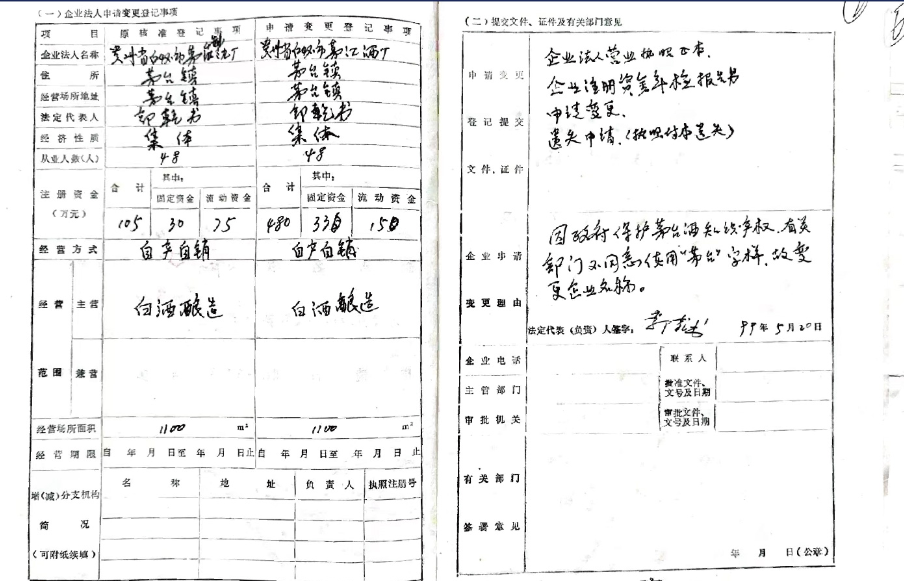 (一)企业法人申请变更登记事项
项 目 原核准登记事项 申请变更登记事项
企业法人名称 贵州省仁怀市茅台 酒厂 贵州省仁怀市茅江酒厂
住 所 茅台镇 茅台镇
经营场所地址 茅台镇 茅台镇
法定代表人
经济性质 集体 集体
从业人数(人) 48 48
注册资金(万元) 合计 其中: 固定资金 流动资金 合计 其中: 固定资金 流动资金
105 30 75 480 330 150
经营方式 自产自销 自产自销
经营范围 主营 白酒酿造 白酒酿造
兼营
经营场所面积 1100 m² 1100 m²
经营期限 自 年 月 日至 年 月 日止 自 年 月 日至 年 月 日止
增(减)分支机构 名 称 地 址 负责人 执照注册号
简 况
(可附纸续填)
(二)提交文件、证件及有关部门意见
申请变更 登记提交 文件、证件
企业法人营业执照正本.
企业注册资金年检报告书
申请变更.
遗失申请.(执照付本遗失)
企业申请 变更理由
因政府保护茅台酒知识产权.有关
部门不同意使用"茅台"字样,故变
更企业名称。
法定代表(负责)人签字: 99年5月20日
企业电话 联系人
主管部门 批准文件、文号及日期
审批机关 审批文件、文号及日期
有关部门
签署意见
年 月 日(公章)